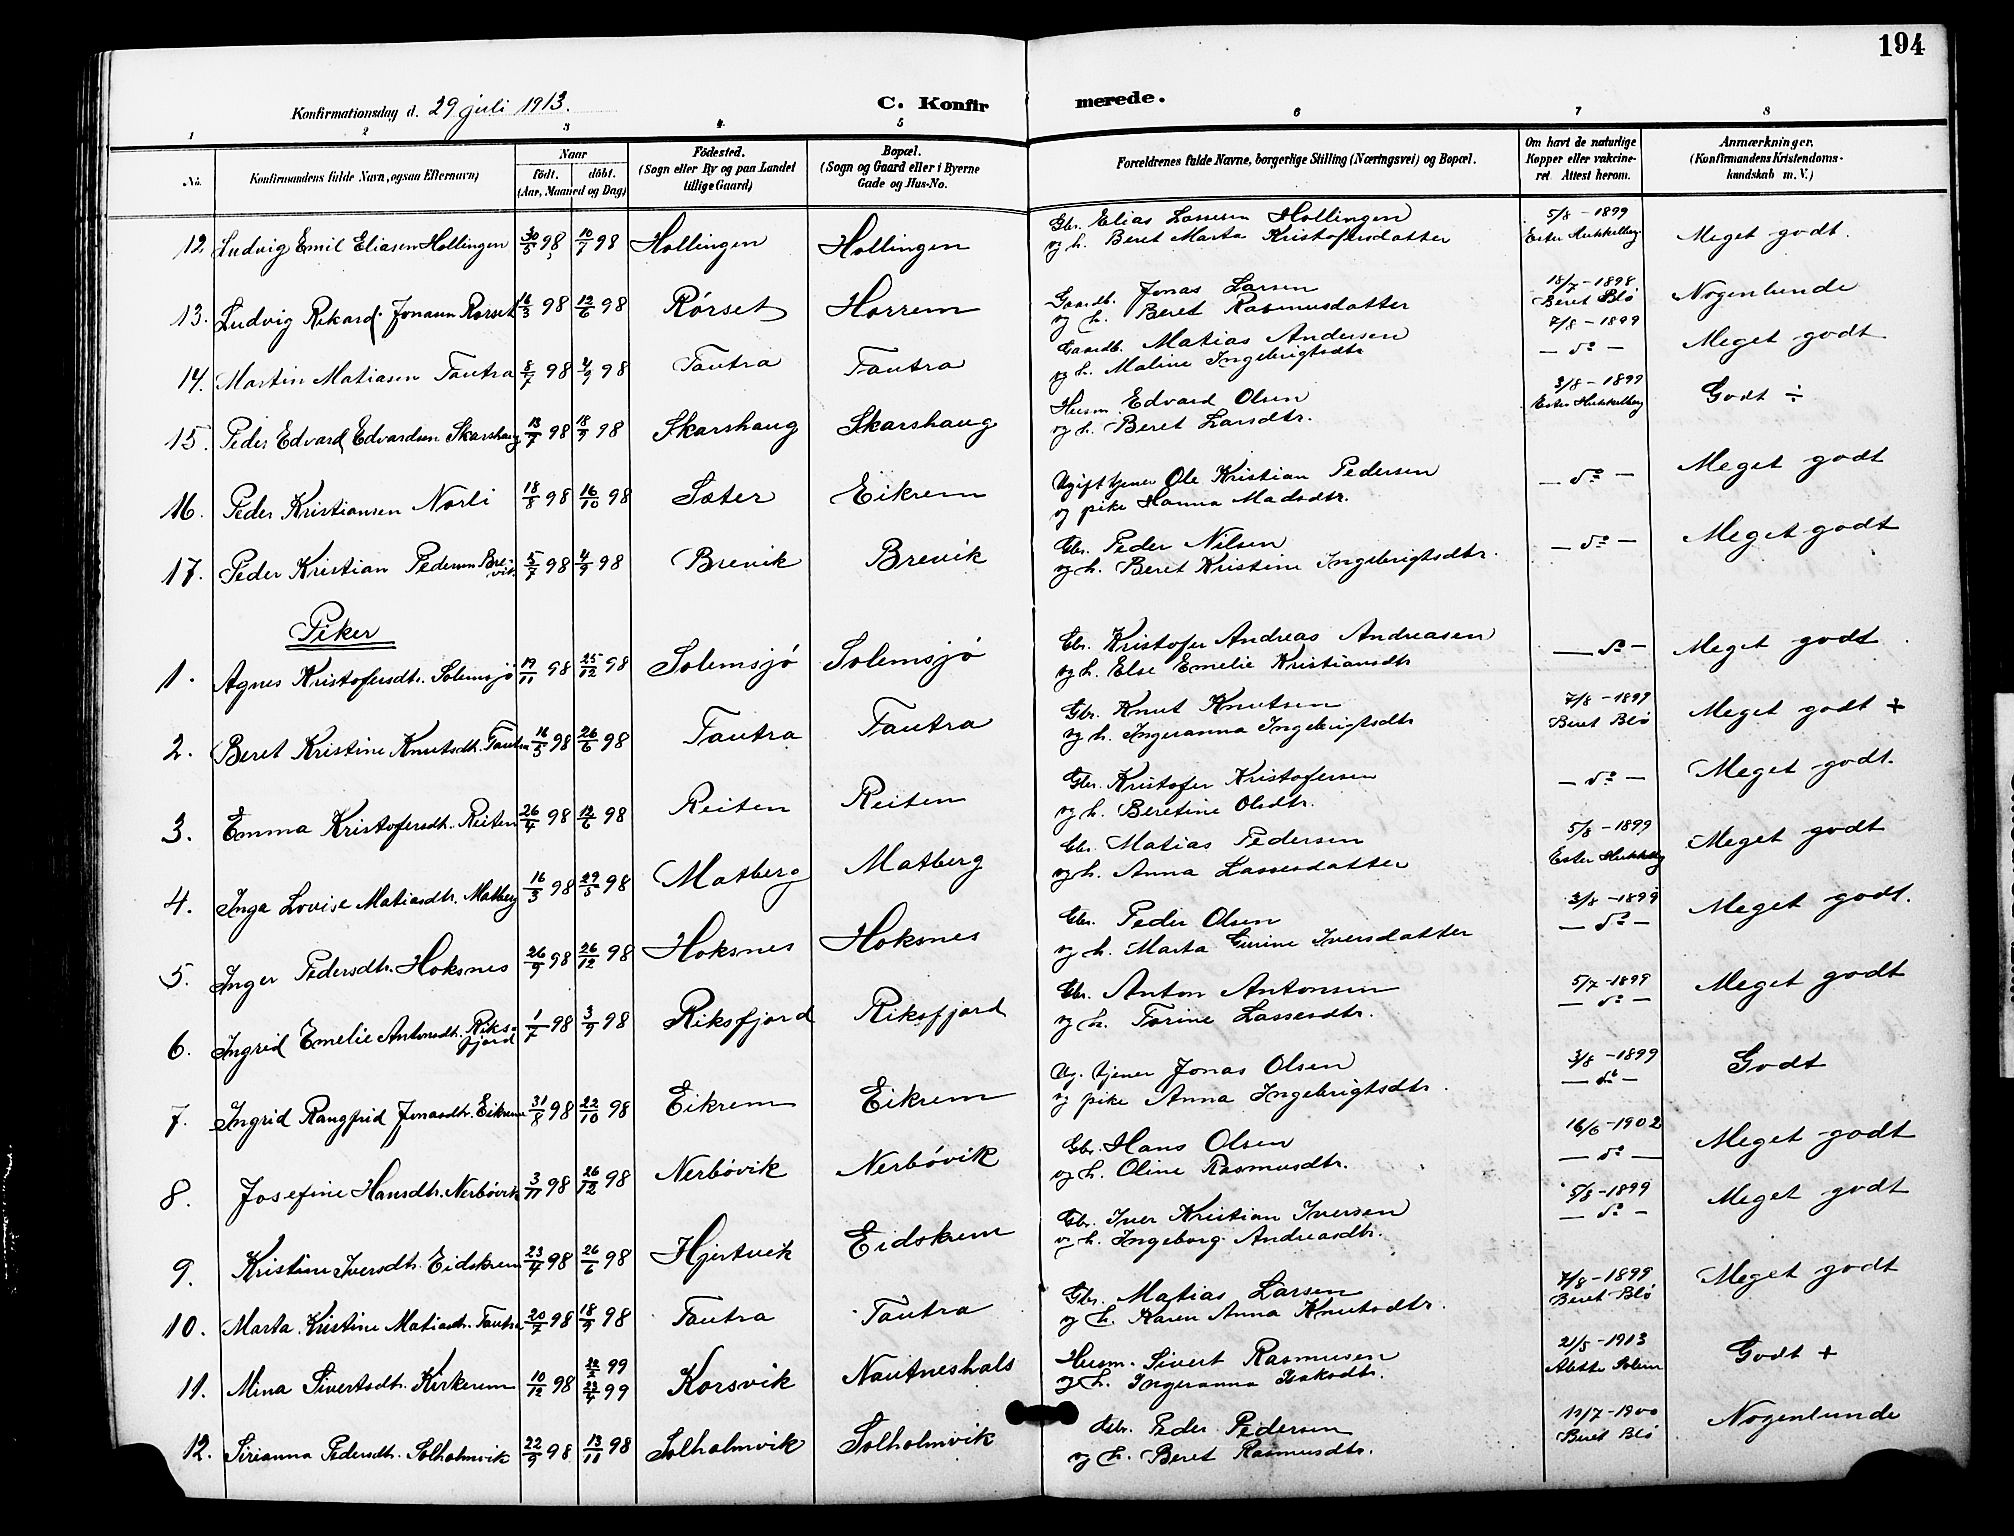 194
Konfirmationsdag d. 29 juli 1913.
C. Konfirmerede.
1 2 3 4 5 6 7 8
No. Konfirmandens fulde Navn, ogsaa Efternavn) Naar født. døbt. (Aar, Maaned og Dag) Fødested. (Sogn eller By og paa Landet tillige Gaard) Bopæl. (Sogn og Gaard eller i Byerne Gade og Hus-No. Forældrenes fulde Navne, borgerlige Stilling (Næringsvei) og Bopæl. Om havt de naturlige Kopper eller vakcineret. Attest herom. Anmærkninger. (Konfirmandens Kristendomskundskab m. V.)
12. Ludvig Emil Eliasen Hollingen 30/5 98 10/7 98 Hollingen Hollingen Gbr. Elias Lassesen Hollingen 5/8 - 1899 Meget godt.
og h. Beret Marta Kristofersdatter Ester Hukkelberg
13. Ludvig Rikard Jonasen Rørset 16/3 98 12/6 98 Rørset Horrem Gaardb. Jonas Larsen 18/7 - 1898 Nogenlunde
og h. Beret Rasmusdatter Beret Blø
14. Martin Matiasen Tautra 8/7 98 4/9 98 Tautra Tautra Gaardb. Matias Andersen 7/8 - 1899 Meget godt
og h. Maline Ingebrigtsdtr — do —
15. Peder Edvard Edvardsen Skarshaug 13/7 98 18/9 98 Skarshaug Skarshaug Husm. Edvard Olsen 3/8 - 1899 Godt ÷
og h. Beret Larsdtr. Ester Hukkelberg
16. Peder Kristiansen Norli 18/8 98 16/10 98 Sæter Eikrem Ugift tjener Ole Kristian Pedersen — do — Meget godt
og pike Hanna Madsdtr.
17. Peder Kristian Pedersen Brevik 5/7 98 4/9 98 Brevik Brevik Gbr. Peder Nilsen — do — Meget godt
og h. Beret Kristine Ingebrigtsdtr.
Piker
1. Agnes Kristofersdtr. Solemsjø 19/11 98 25/12 98 Solemsjø Solemsjø Gbr. Kristofer Andreas Andreasen — do — Meget godt.
og h. Else Emelie Kristiansdtr
2. Beret Kristine Knutsdtr. Tautra 16/5 98 26/6 98 Tautra Tautra Gbr. Knut Knutsen 7/8 - 1899 Meget godt +
og h. Ingeranna Ingebrigtsdtr Beret Blø
3. Emma Kristofersdtr. Reiten 26/4 98 12/6 98 Reiten Reiten Gbr. Kristofer Kristofersen — do — Meget godt.
og h. Beretine Olsdtr.
4. Inga Lovise Matiasdtr. Matberg 16/3 98 29/5 98 Matberg Matberg Gbr. Matias Pedersen 5/8 - 1899 Meget godt
og h. Anna Lassesdatter Ester Hukkelberg
5. Inger Pedersdtr. Hoksnes 26/9 98 26/12 98 Hoksnes Hoksnes Gbr. Peder Olsen 3/8 - 1899 Meget godt.
og h. Marta Gurine Iversdatter — do —
6. Ingrid Emelie Antonsdtr. Riksfjord 1/7 98 3/9 98 Riksfjord Riksfjord Gbr. Anton Antonsen 5/7 - 1899 Meget godt
og h. Torine Lassesdtr. — do —
7. Ingrid Rangfrid Jonasdtr. Eikrem 31/8 98 22/10 98 Eikrem Eikrem Ug. tjener Jonas Olsen 3/8 - 1899 Godt
og pike Anna Ingebrigtsdtr. — do —
8. Josefine Hansdtr. Nerbøvik 3/11 98 26/12 98 Nerbøvik Nerbøvik Gbr. Hans Olsen 16/6 - 1902 Meget godt
og h. Oline Rasmusdtr. — do —
9. Kristine Iversdtr. Eidskrem 23/4 98 26/6 98 Hjertvik Eidskrem Gbr. Iver Kristian Iversen 5/8 - 1899 Meget godt
og h. Ingeborg Andreasdtr. — do —
10. Marta Kristine Matiasdtr. Tautra 20/7 98 18/9 98 Tautra Tautra Gbr. Matias Larsen 7/8 - 1899 Meget godt
og h. Karen Anna Knutsdtr. Beret Blø
11. Mina Sivertsdtr. Kirkerem 10/12 98 99 99 Korsvik Nautneshals Husm. Sivert Rasmusen 21/5 - 1913 Godt +
og h. Ingeranna Isaksdtr. Alette Solem
12. Sirianna Pedersdtr. Solholmvik 22/9 98 13/11 98 Solholmvik Solholmvik Gbr. Peder Pedersen 11/7 - 1900 Nogenlunde
og h. Beret Rasmusdtr. Beret Blø